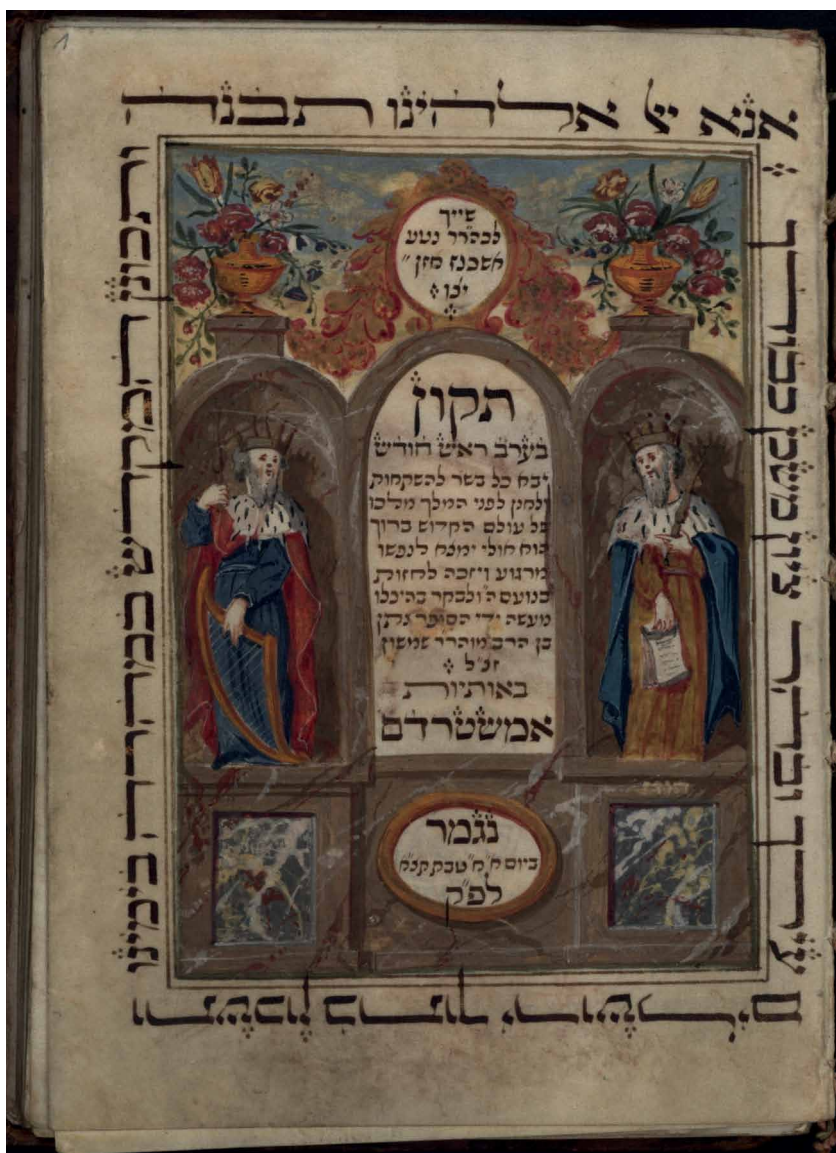 אנא יי אלהינו תבנה
עירך ציון משכן כבודך
ותשכון בתוך ירושלים
ותכונן המקדש במהרה בימינו
שייך
לכהרר נטע
אשכנז מזן"
יצו
תקון
בערב ראש חודש
יבא כל בשר להשתחות
ולחנן לפני המלך מלכו
של עולם הקדוש ברוך
הוא ימצא לנפשו
מרגוע ויזכה לחזות
בנועם ה' ולבקר בהיכלו
מעשה ידי הסופר נתן
בן הרב מוהרר שמשון
זצ"ל
באותיות
אמשטרדם
נגמר
ביום טבת
לפ"ק
1